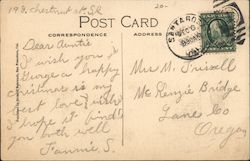 198 Chestnut St SR
20-
POST CARD
CORRESPONDENCE
ADDRESS
SANTA RO
DEC
CAL
Dear Auntie
I wish you &
George a happy
christmas is my
best love wish
I hope it finds
you both well
Fannie S.
Mrs M.
McKenzie Bridge
Lane Co
Oregon